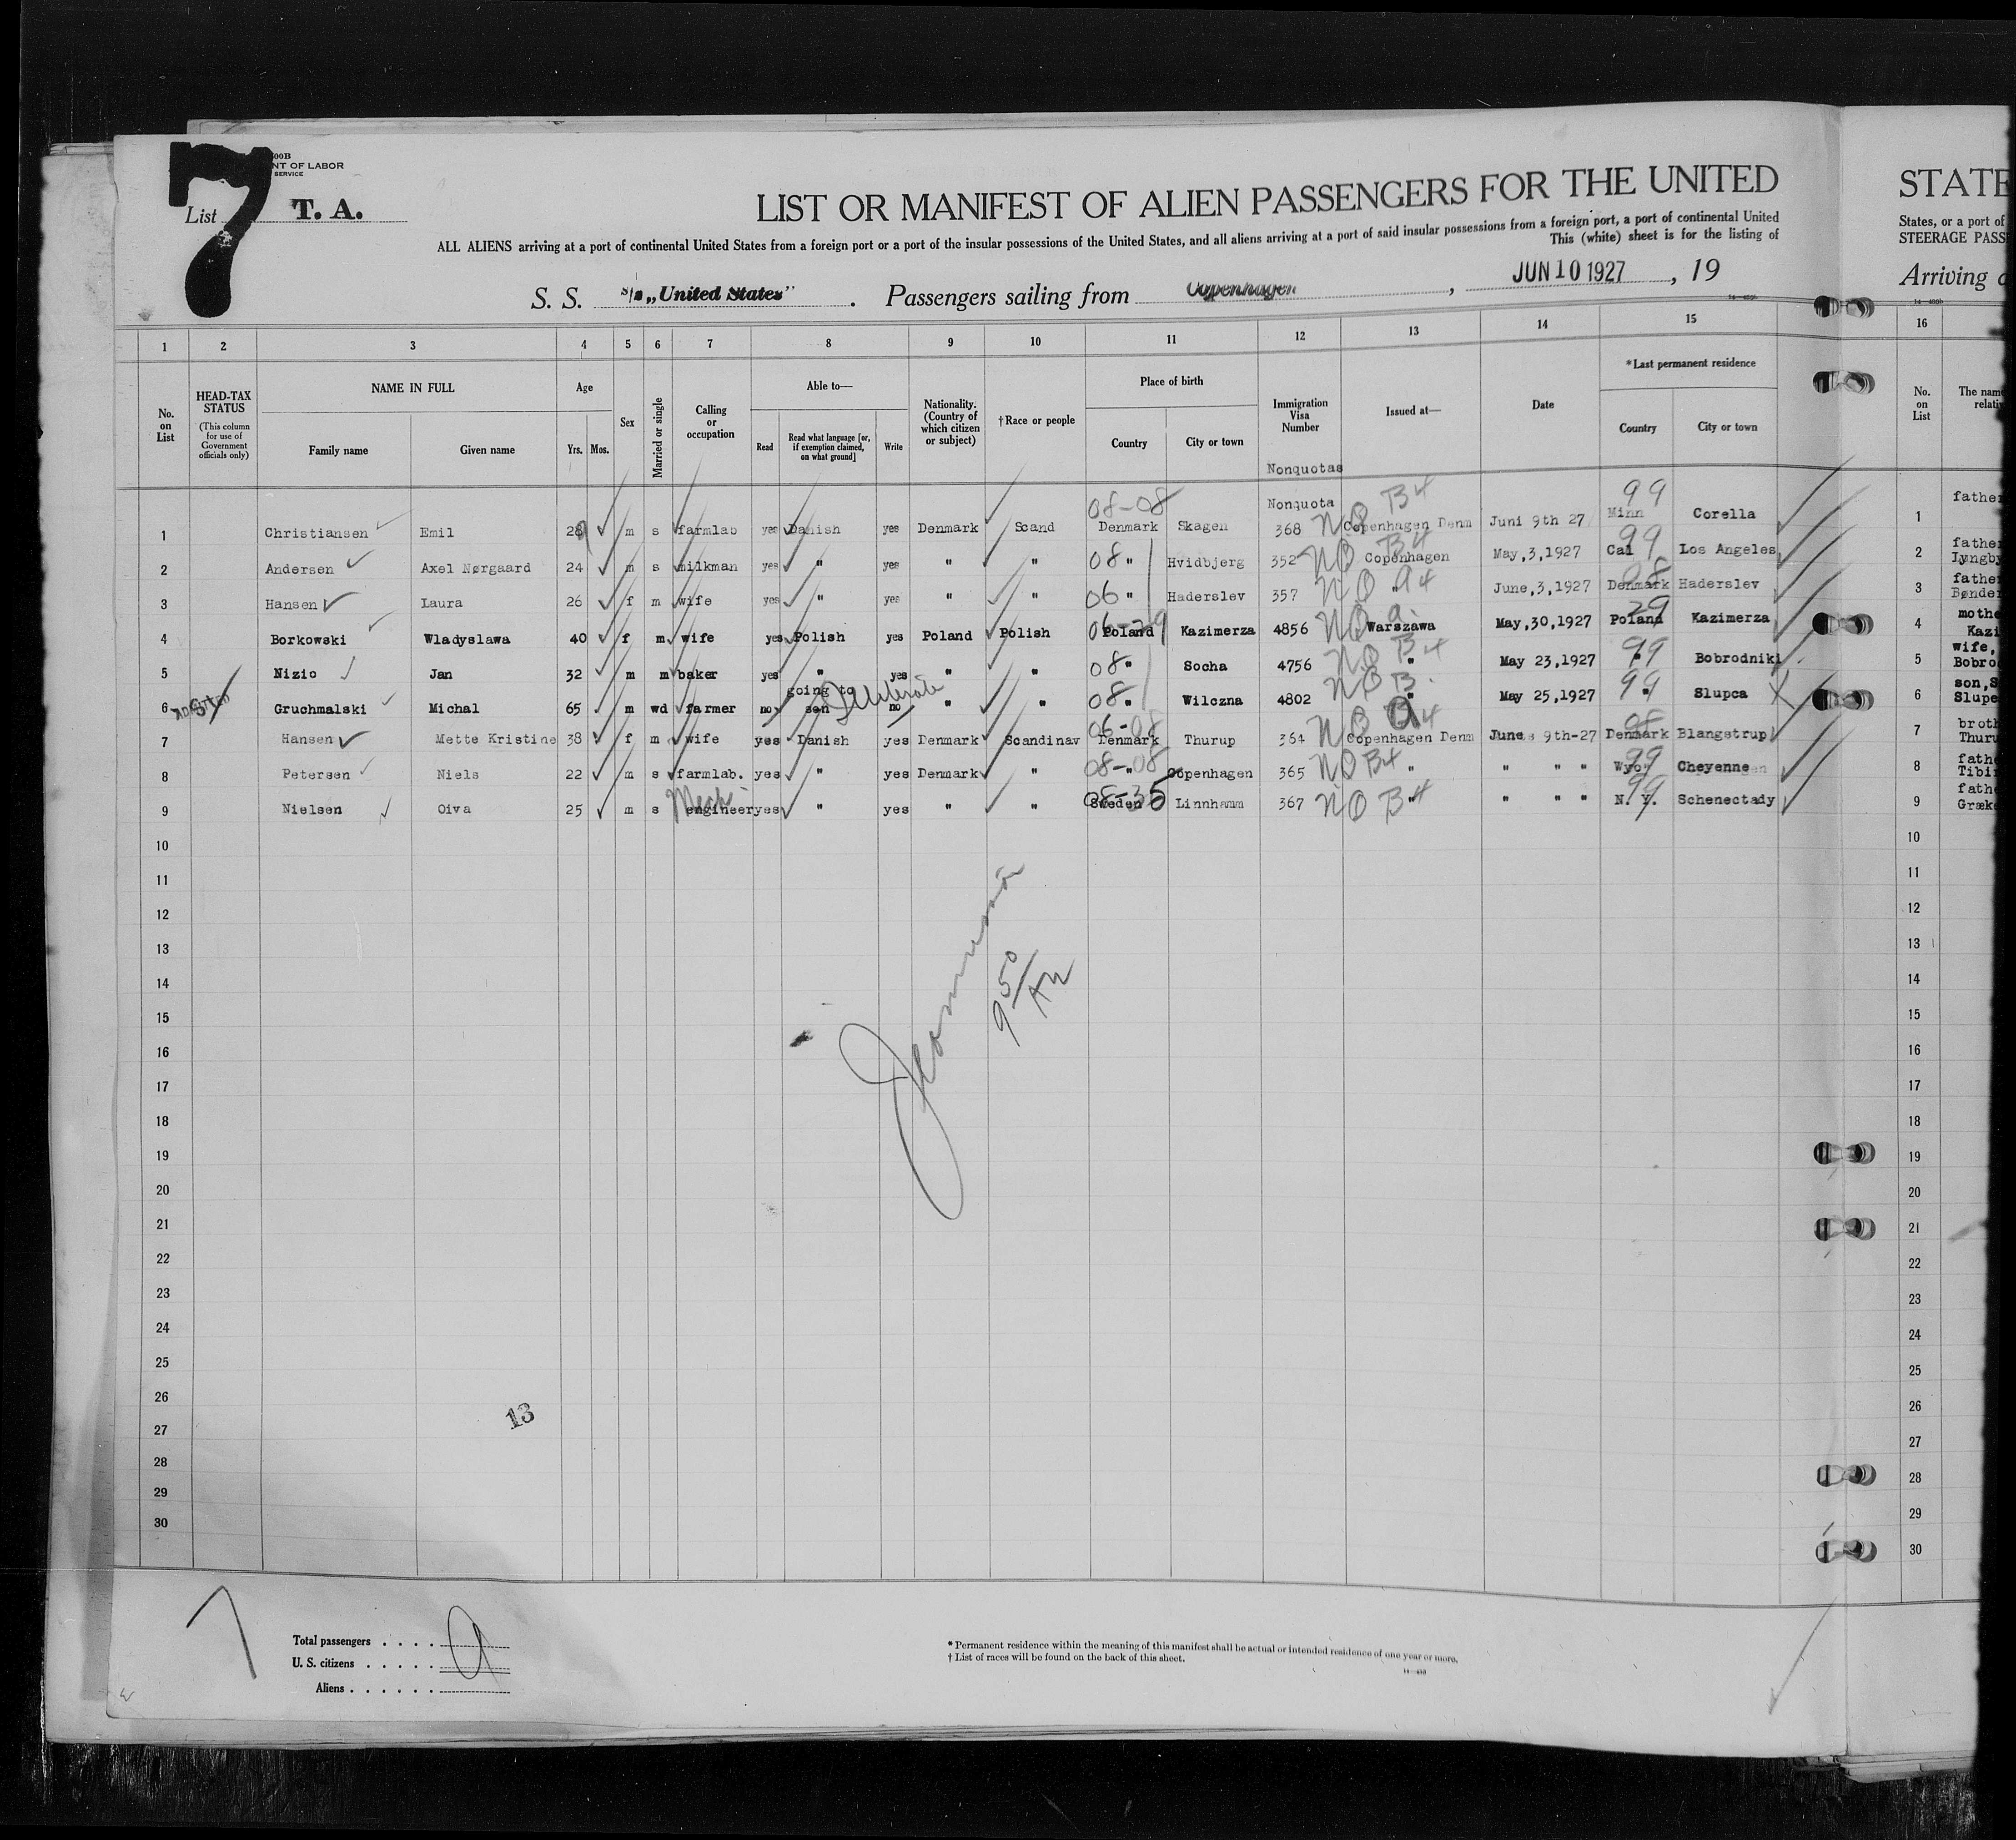 7
00B
NT OF LABOR
SERVICE
List T. A.
LIST OR MANIFEST OF ALIEN PASSENGERS FOR THE UNITED
ALL ALIENS arriving at a port of continental United States from a foreign port or a port of the insular possessions of the United States, and all aliens arriving at a port of said insular possessions from a foreign port, a port of continental United
This (white) sheet is for the listing of
S. S. s/s „United States" . Passengers sailing from Copenhagen , JUN 10 1927 , 19
STATE
States, or a port of
STEERAGE PASS
Arriving
1 2 3 4 5 6 7 8 9 10 11 12 13 14 15 16
No. on List
HEAD-TAX STATUS
(This column for use of Government officials only)
NAME IN FULL
Family name Given name
Age
Yrs. Mos.
Sex
Married or single
Calling or occupation
Able to—
Read
Read what language [or, if exemption claimed, on what ground]
Write
Nationality. (Country of which citizen or subject)
†Race or people
Place of birth
Country City or town
Immigration Visa Number
Issued at—
Date
*Last permanent residence
Country City or town
No. on List
The nam
relati
Nonquotas
Nonquota 08-08 NO B4 99
1 Christiansen Emil 28 m s farmlab yes Danish yes Denmark Scand Denmark Skagen 368 Copenhagen Denm Juni 9th 27 Minn Corella 1 father
2 Andersen Axel Nørgaard 24 m s milkman yes " yes " " 08 " Hvidbjerg 352 NO B4 Copenhagen May,3,1927 Cal 99 Los Angeles 2 father Lyngby
3 Hansen Laura 26 f m wife yes " yes " " 06 " Haderslev 357 NO a4 " June,3,1927 Denmark 08 Haderslev 3 father Bønder
4 Borkowski Wladyslawa 40 f m wife yes Polish yes Poland Polish 06-29 Poland Kazimerza 4856 NO a Warszawa May,30,1927 Poland 29 Kazimerza 4 mothe Kazi
5 Nizio Jan 32 m m baker yes " yes " " 08 " Socha 4756 NO B4 " May 23,1927 " 99 Bobrodniki 5 wife, Bobro
6 ADMITTED Gruchmalski Michal 65 m wd farmer no going to son no " " 08 " Wilczna 4802 NO B " May 25,1927 " 99 Slupca 6 son,S Slupe
7 Hansen Mette Kristine 38 f m wife yes Danish yes Denmark Scandinav 06-08 Denmark Thurup 364 NO a4 Copenhagen Denm June 9th-27 Denmark 08 Blangstrup 7 broth Thuru
8 Petersen Niels 22 m s farmlab. yes " yes Denmark " 08-08 " Copenhagen 365 NO B4 " " " " Wyo 99 Cheyenne 8 fathe Tibi
9 Nielsen Oiva 25 m s Mech engineer yes " yes " " 08-35 Sweden Linnhamm 367 NO B4 " " " " N. Y. 99 Schenectady 9 fathe Græk
10 10
11 11
12 12
13 13
14 14
15 15
16 16
17 17
18 18
19 19
20 20
21 21
22 22
23 23
24 24
25 25
26 26
27 27
28 28
29 29
30 30
9 50/
13
7
Total passengers . . . . 9
U. S. citizens . . . . .
Aliens . . . . . .
* Permanent residence within the meaning of this manifest shall be actual or intended residence of one year or more.
† List of races will be found on the back of this sheet.